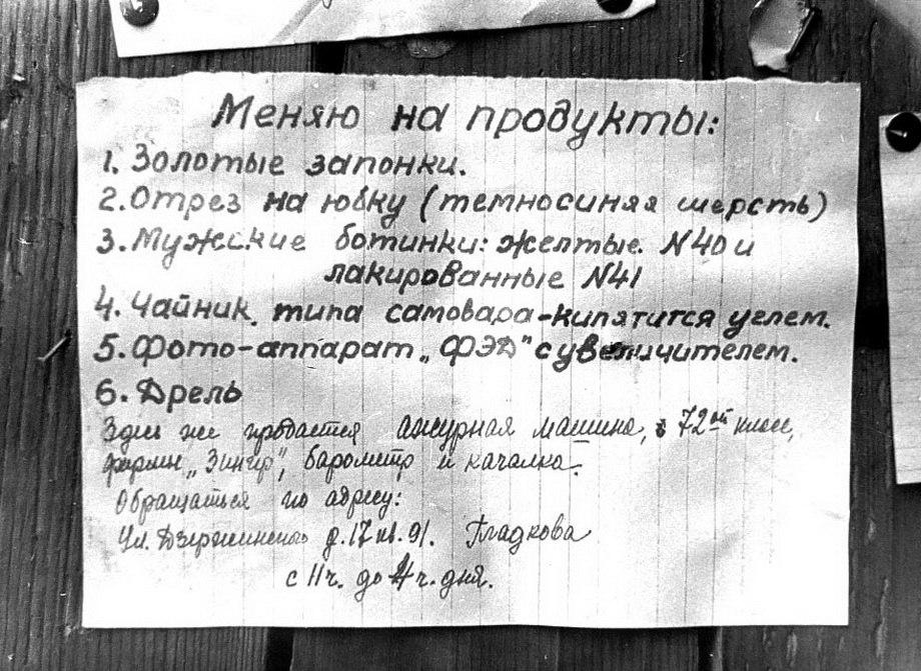 Меняю на продукты:
1. Золотые запонки.
2. Отрез на юбку (темносиняя шерсть)
3. Мужские ботинки: желтые. N40 и
лакированные N41
4. Чайник типа самовара-кипятится углем.
5. Фото-аппарат „ФЭД" с увеличителем.
6. Дрель
Здесь же продается ажурная машина, 72ой класс,
фирмы „Зингер", барометр и качалка.
Обращаться по адресу:
Ул. Дзержинского д. 17 кв. 91. Гладкова
с 11 ч. до 4 ч. дня.